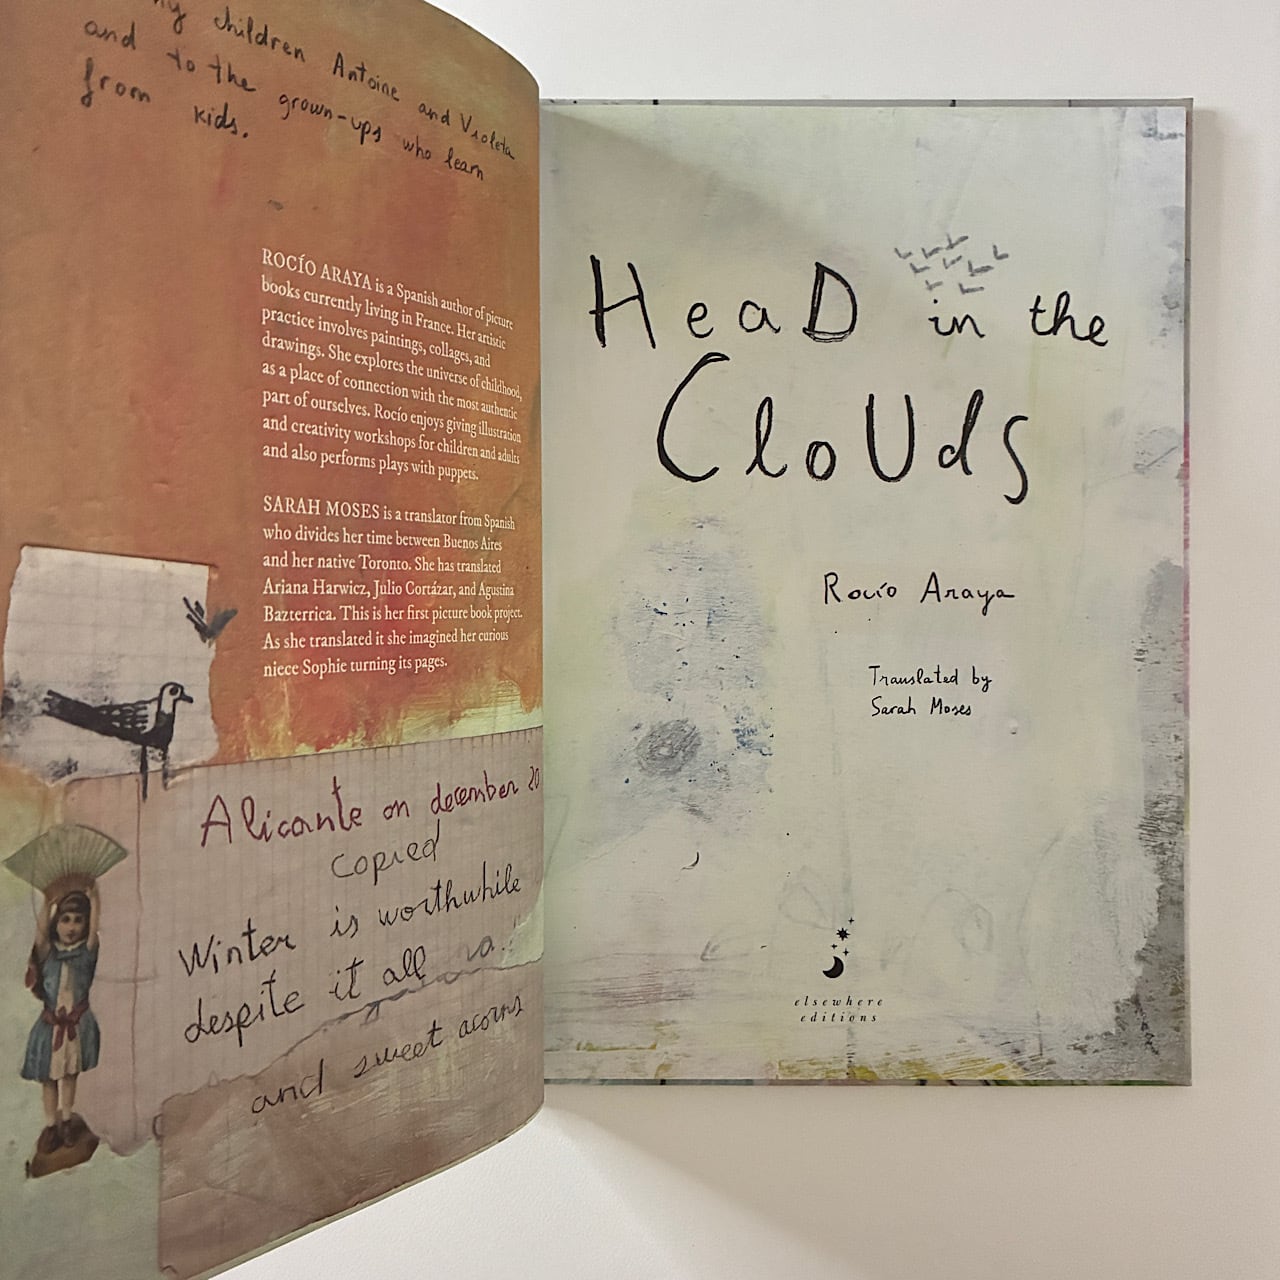 my children Antoine and Violeta
and to the grown-ups who learn
from kids.
ROCÍO ARAYA is a Spanish author of picture
books currently living in France. Her artistic
practice involves paintings, collages, and
drawings. She explores the universe of childhood,
as a place of connection with the most authentic
part of ourselves. Rocío enjoys giving illustration
and creativity workshops for children and adults
and also performs plays with puppets.
SARAH MOSES is a translator from Spanish
who divides her time between Buenos Aires
and her native Toronto. She has translated
Ariana Harwicz, Julio Cortázar, and Agustina
Bazterrica. This is her first picture book project.
As she translated it she imagined her curious
niece Sophie turning its pages.
Alicante on december 20
copied
Winter is worthwhile
despite it all
and sweet acorns
HeaD in the
CloUds
Rocío Araya
Translated by
Sarah Moses
elsewhere
editions